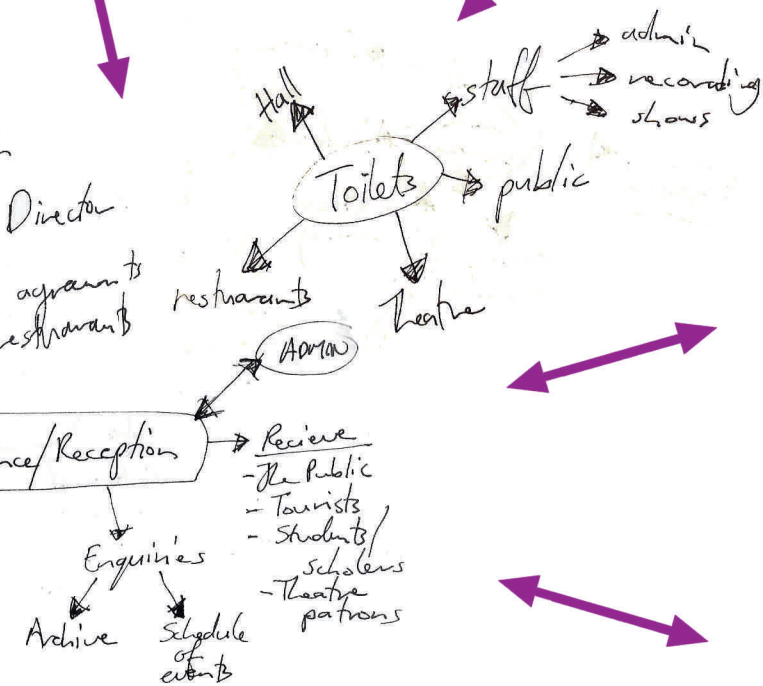 Hall
staff
admin
recording
shows
Toilets
public
restuarants
Theatre
Director
ADMIN
nce/Reception
Recieve
- The Public
- Tourists
- Students/
scholers
- Theatre
patrons
Enquiries
Archive
Schedule
of
events